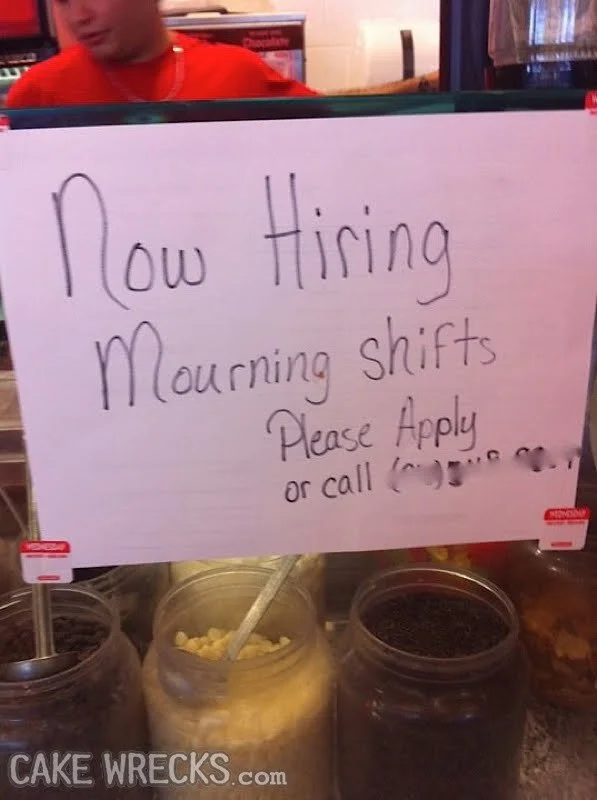 Now Hiring
Mourning shifts
Please Apply
or call
WEDNESDAY
WEDNESDAY
CAKE WRECKS.com